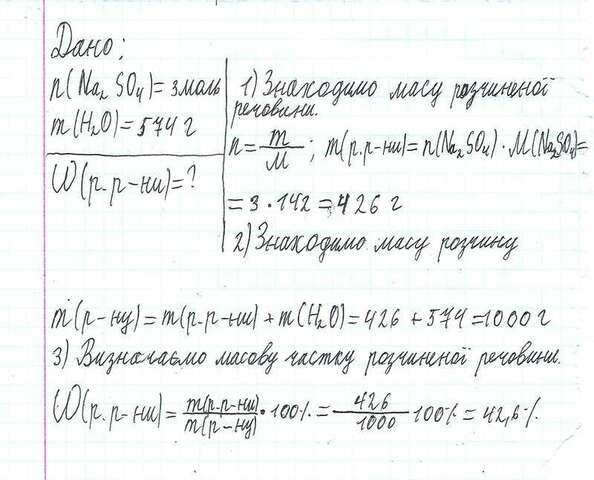 Дано:
n(Na₂SO₄)=3моль
m(H₂O)=574 г
W(р.р-ни)=?
1) Знаходимо масу розчиненої
речовини.
n=m/M; m(р.р-ни)=n(Na₂SO₄)·M(Na₂SO₄)=
=3·142=426 г
2) Знаходимо масу розчину
m(р-ну)=m(р.р-ни)+m(H₂O)=426+574=1000 г
3) Визначаємо масову частку розчиненої речовини.
W(р.р-ни)=m(р.р-ни)/m(р-ну)·100%=426/1000 100%=42,6%.